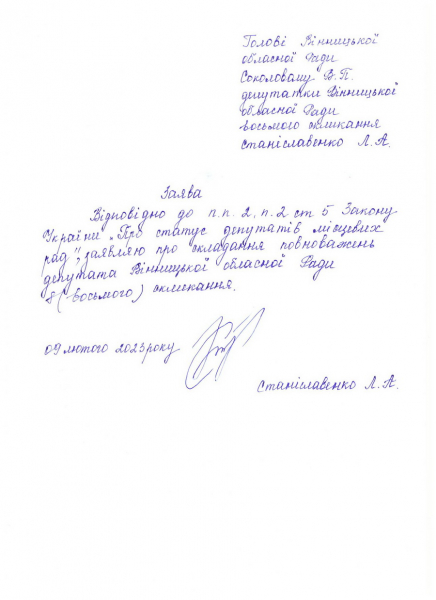 Голові Вінницької
обласної Ради
Соколовому В.П.
депутатки Вінницької
обласної Ради
восьмого скликання
Станіславенко Л.А.
Заява
Відповідно до п.п. 2, п. 2 ст 5 Закону
України „Про статус депутатів місцевих
рад", заявляю про складання повноважень
депутата Вінницької обласної Ради
8 (-восьмого) скликання.
09 лютого 2023 року
Станіславенко Л.А.